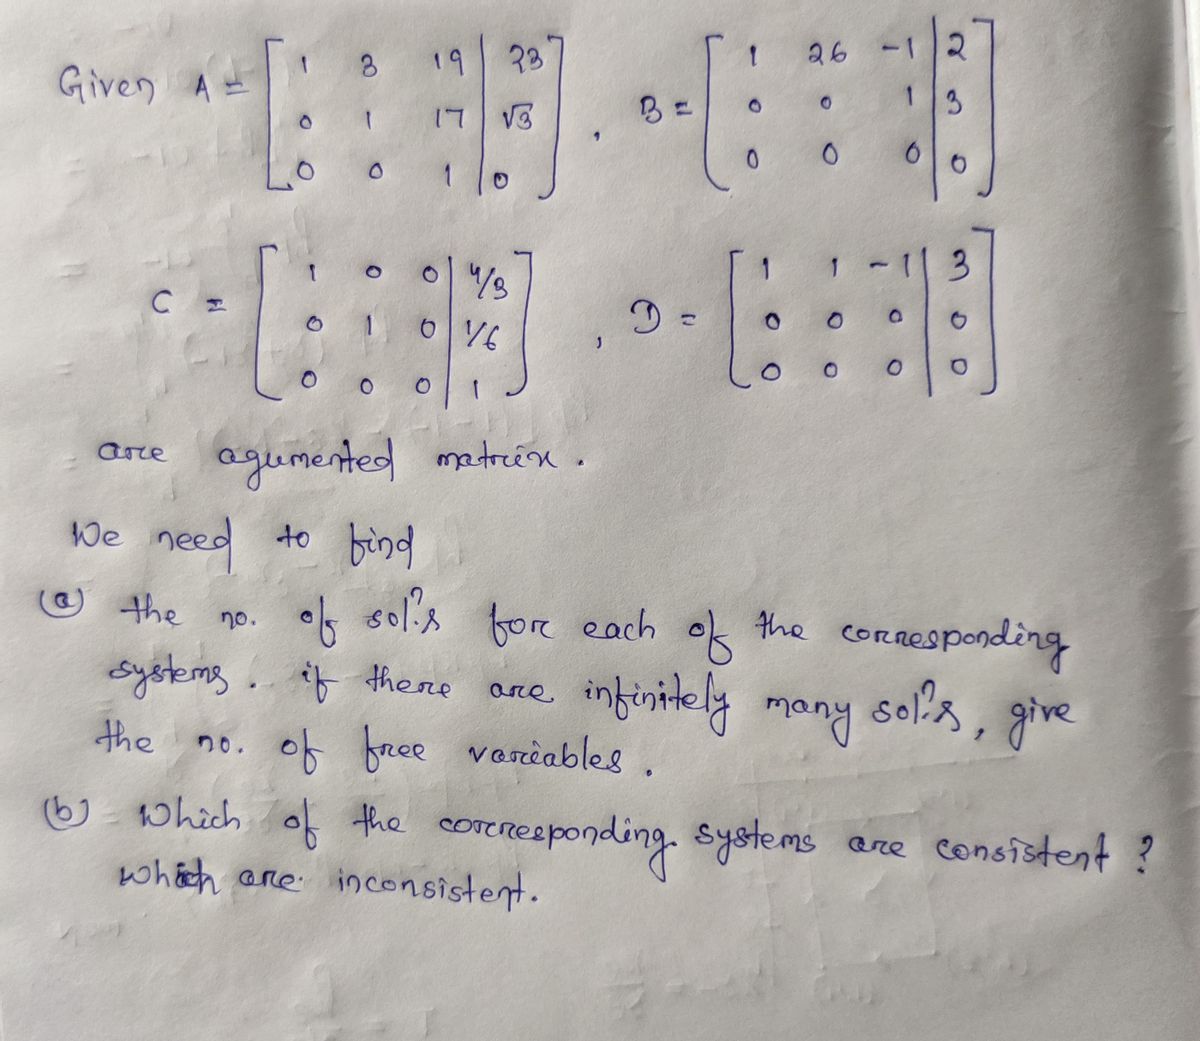 Given A = [ 1 3 19 | 23
0 1 17 | √3
0 0 1 | 0 ] , B = [ 1 26 -1 | 2
0 0 1 | 3
0 0 0 | 0 ]
C = [ 1 0 0 | 4/3
0 1 0 | 1/6
0 0 0 | 1 ] , D = [ 1 1 -1 | 3
0 0 0 | 0
0 0 0 | 0 ]
are agumented matrix.
We need to find
(a) the no. of sol?s for each of the corresponding
systems. if there are infinitely many sol?s, give
the no. of free variables.
(b) Which of the corresponding systems are consistent ?
which are inconsistent.